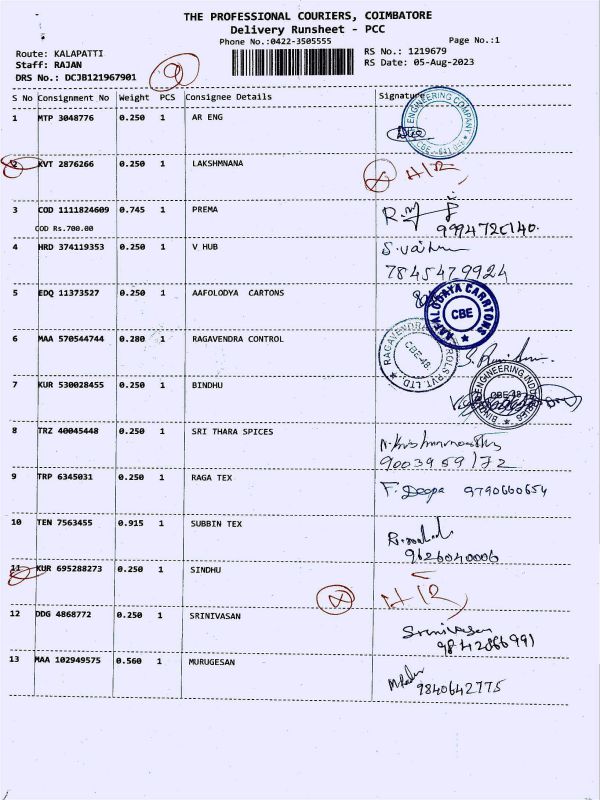 THE PROFESSIONAL COURIERS, COIMBATORE
Delivery Runsheet - PCC
Phone No.:0422-3505555
Page No.:1
Route: KALAPATTI
RS No.: 1219679
Staff: RAJAN
RS Date: 05-Aug-2023
DRS No.: DCJB121967901
S No Consignment No Weight PCS Consignee Details Signature
1 MTP 3048776 0.250 1 AR ENG
ENGINEERING COMPANY
2 KVT 2876266 0.250 1 LAKSHMNANA
3 COD 1111824609 0.745 1 PREMA
COD Rs.700.00
4 HRD 374119353 0.250 1 V HUB
7845479924
5 EDQ 11373527 0.250 1 AAFOLODYA CARTONS
AAFALODAYA CARRTONS
CBE
6 MAA 570544744 0.280 1 RAGAVENDRA CONTROL
CBE-48.
7 KUR 530028455 0.250 1 BINDHU
CBE-48
8 TRZ 40045448 0.250 1 SRI THARA SPICES
9 TRP 6345031 0.250 1 RAGA TEX F. Deepa 9790660654
10 TEN 7563455 0.915 1 SUBBIN TEX
9626040006
11 KUR 695288273 0.250 1 SINDHU
12 DDG 4868772 0.250 1 SRINIVASAN
Srinivasan
9842866991
13 MAA 102949575 0.560 1 MURUGESAN
9840642775